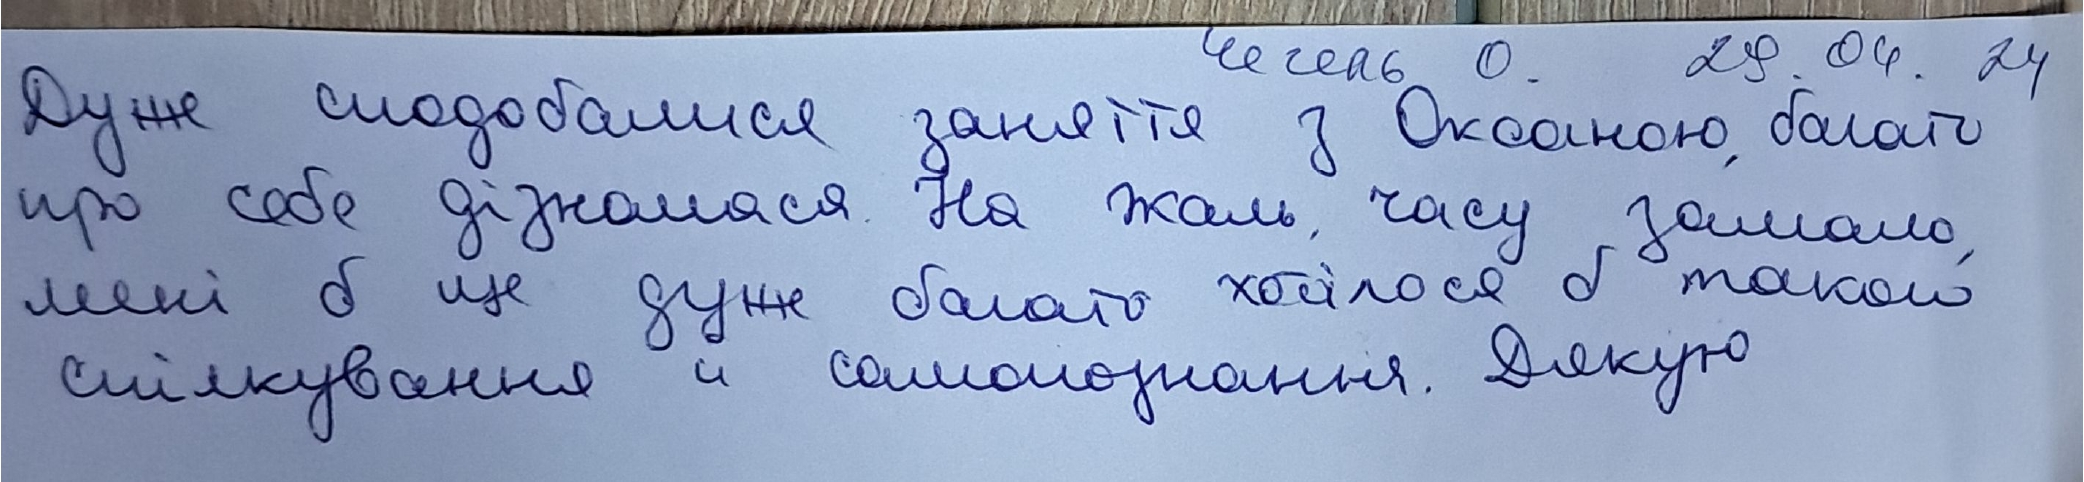 Чегель О. 29.04.24
Дуже сподобалися заняття з Оксаною, багато
про себе дізналася. На жаль, часу замало,
мені б ще дуже багато хотілося б такого
спілкування й самопізнання. Дякую